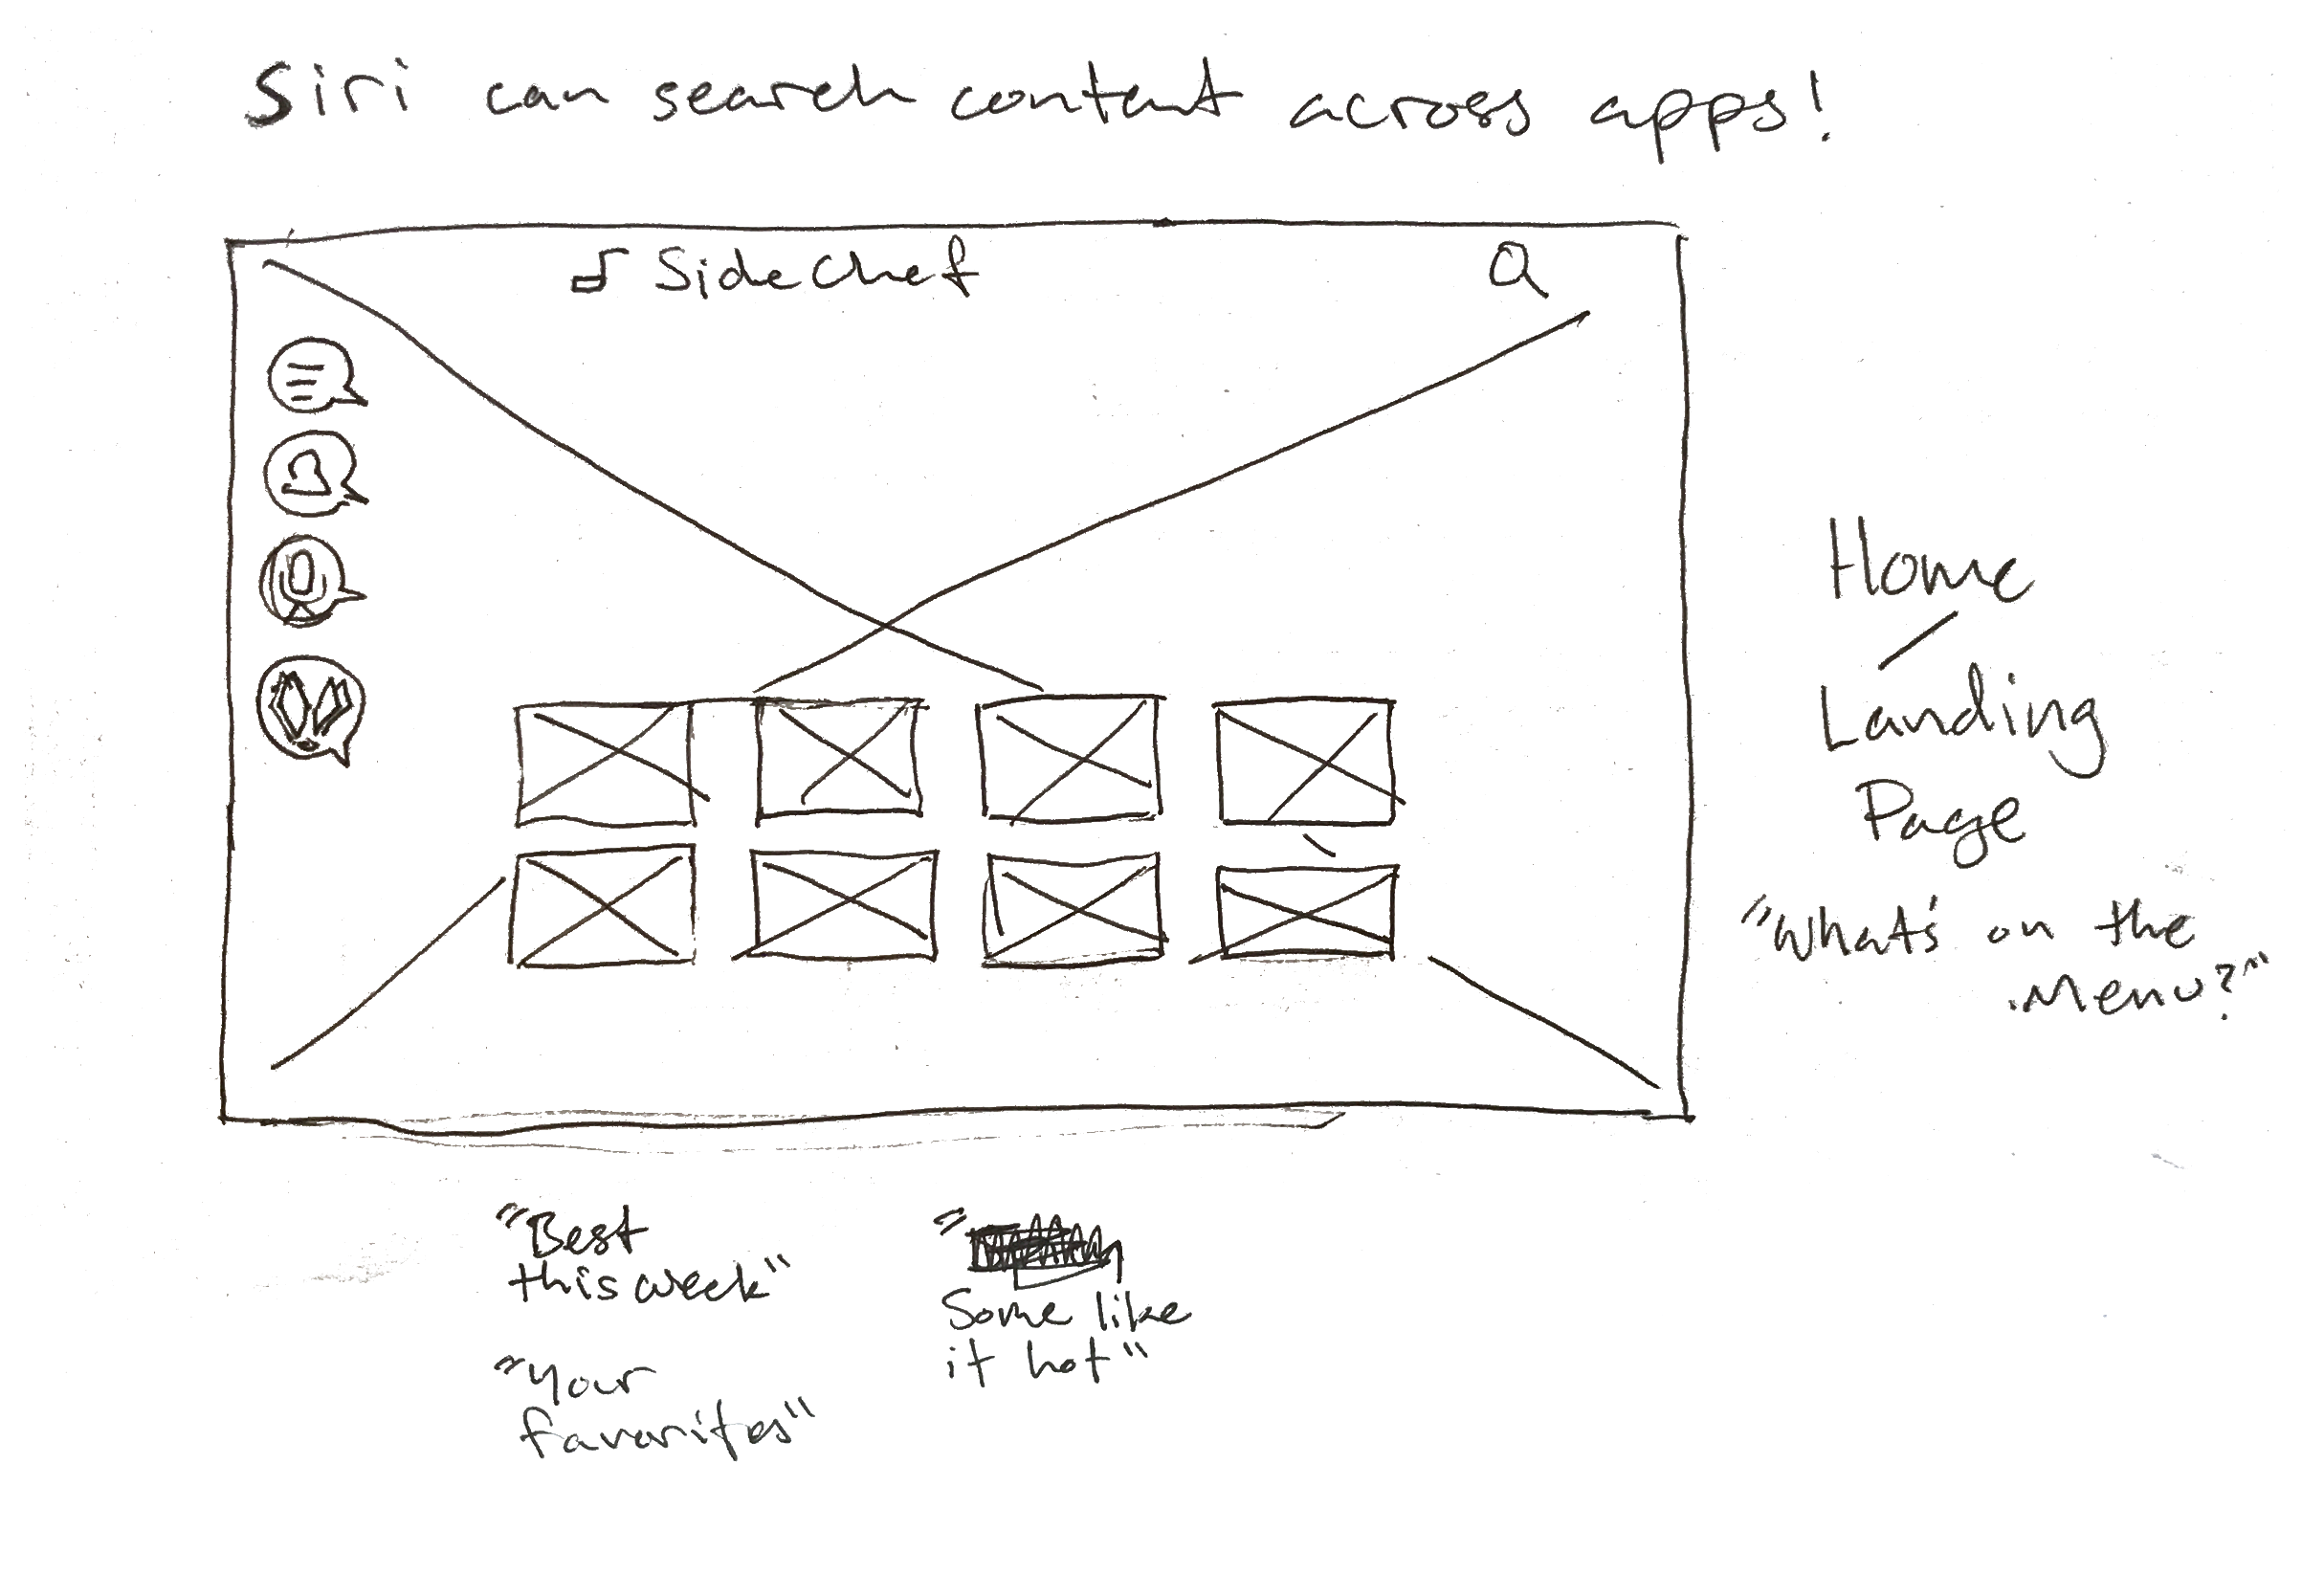 Siri can search content across apps!
SideChef
Home
/
Landing
Page
"What's on the
Menu?"
"Best
this week"
"Your
favorites"
"
Some like
it hot"